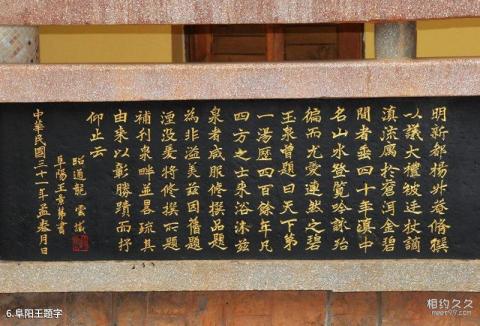 明新都楊升菴脩撰
以議大禮被廷杖謫
滇流寓於蒼洱金碧
間者垂四十年滇中
名山水登覽吟詠殆
徧而尤愛連然之碧
玉泉曾題曰天下第
一湯歷四百餘年凡
四方之士來浴沐茲
泉者咸服脩撰品題
為非溢美茲因舊題
湮没爰將脩撰所題
補刊泉畔並畧疏其
由來以彰勝蹟而抒
仰止云
昭通龍雲識
阜陽王書
中華民國三十一年孟春月日
6.阜阳王题字
相约久久
meet99.com